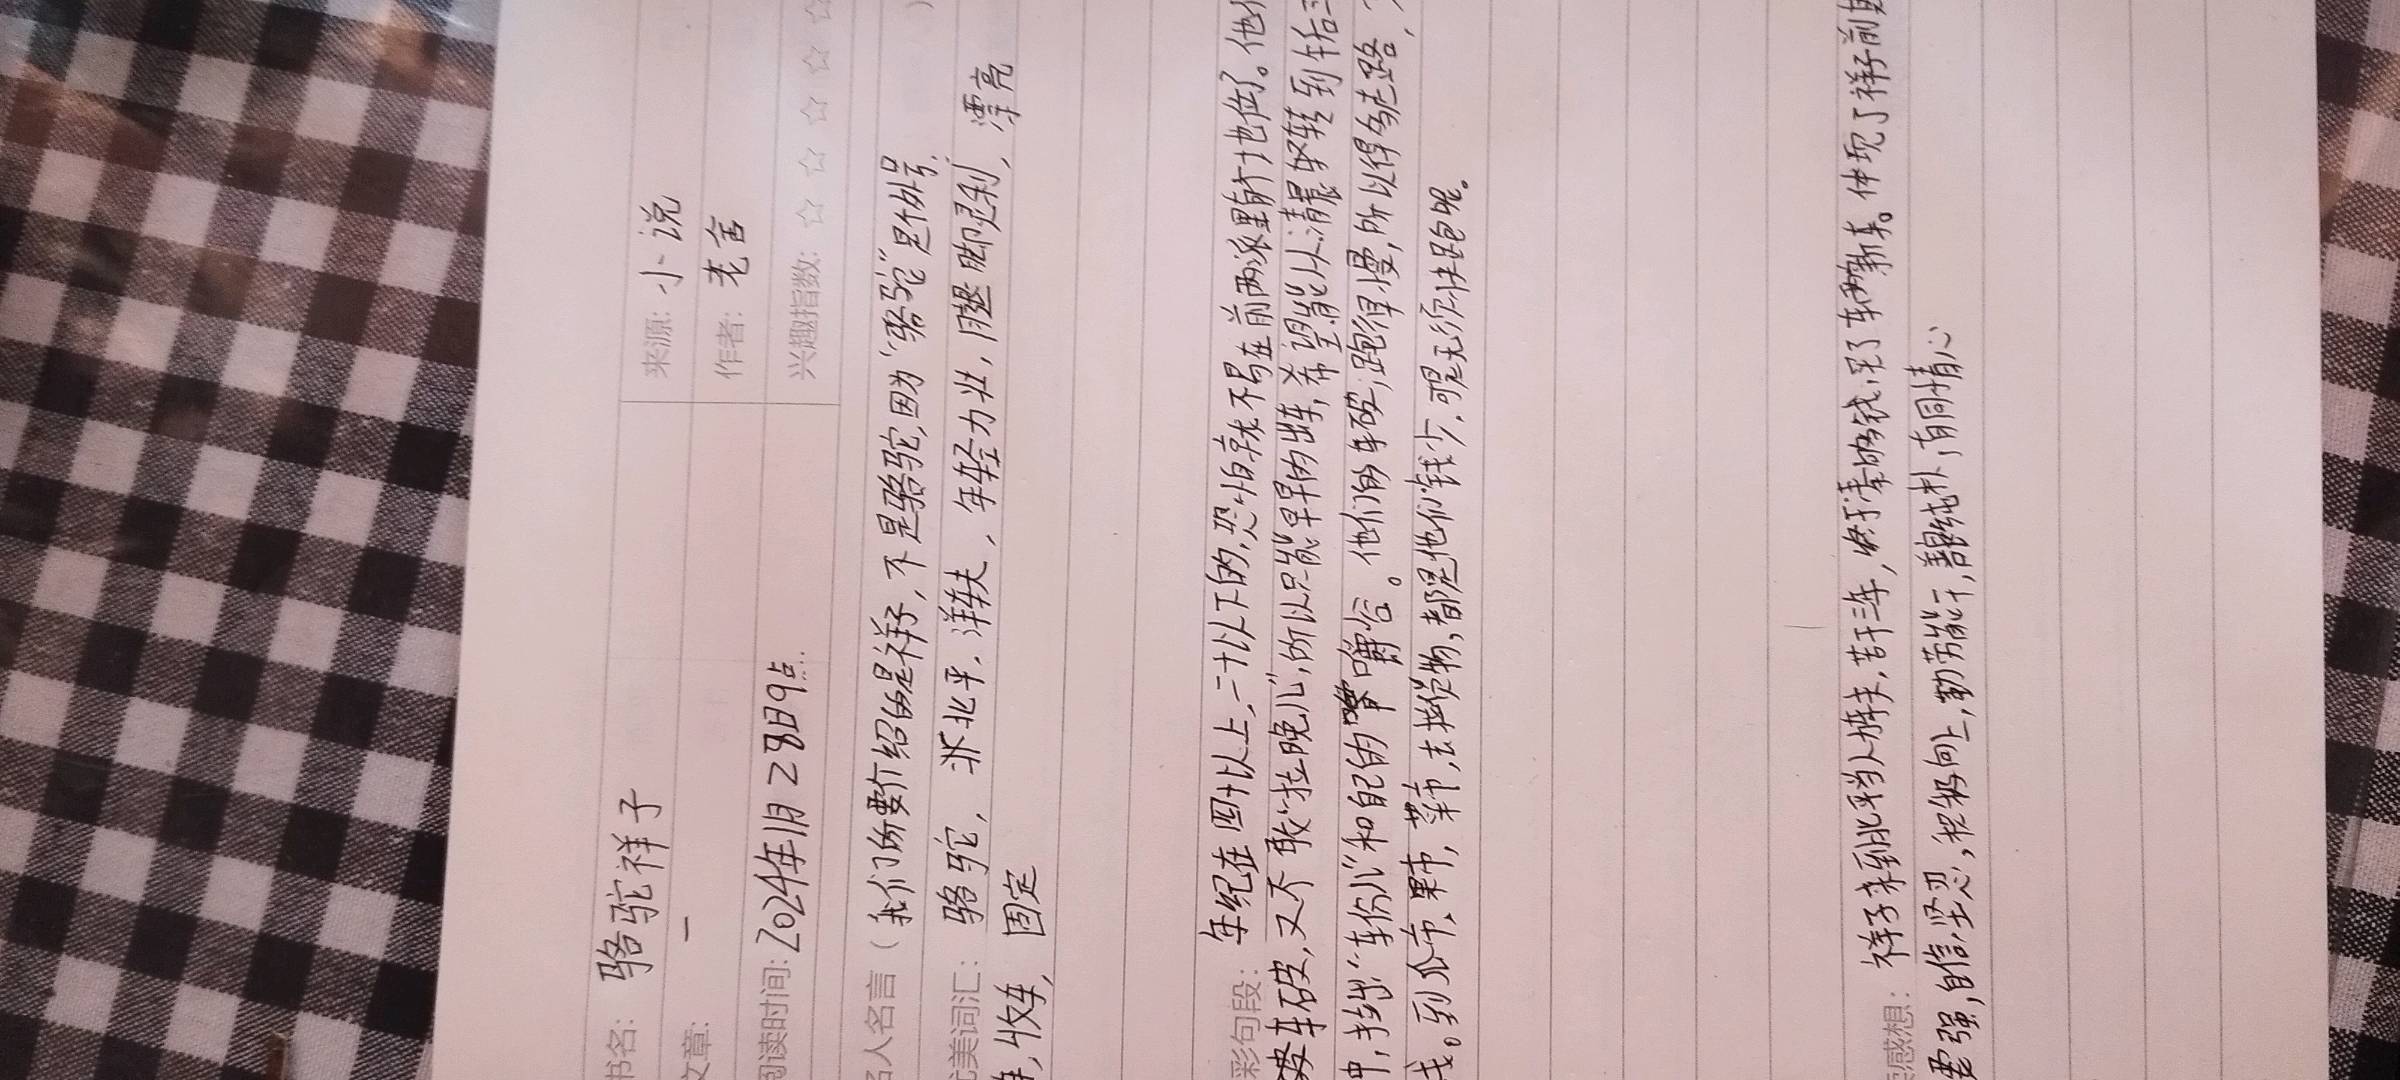 书名: 骆驼祥子 来源: 小说
文章: 一 作者: 老舍
阅读时间: 2024年1月28日9点 兴趣指数: ☆ ☆ ☆ ☆ ☆
名人名言（我们所要介绍的是祥子，不是骆驼，因为“骆驼”是个外号. ）
优美词汇: 骆驼, 北平, 洋车夫, 年轻力壮, 腿脚灵利, 漂亮
车, 收车, 固定
精彩句段: 年纪在四十以上,二十以下的,恐怕就不易在前两派里有个地位了。他们
的车破,又不敢“拉晚儿”,所以只能早早的出车,希望能从清晨转到午后三
中,拉出“车份儿”和自己的嚼谷。他们的车破,跑得慢,所以得多走路,
钱。到瓜市,果市,菜市,去拉货物,都是他们;钱少,可是无须快跑呢。
感想: 祥子来到北平当人力车夫,苦干三年,终于凑够钱,买了一辆新车。体现了祥子前期
要强,自信,坚忍,积极向上,勤劳能干,善良纯朴,有同情心